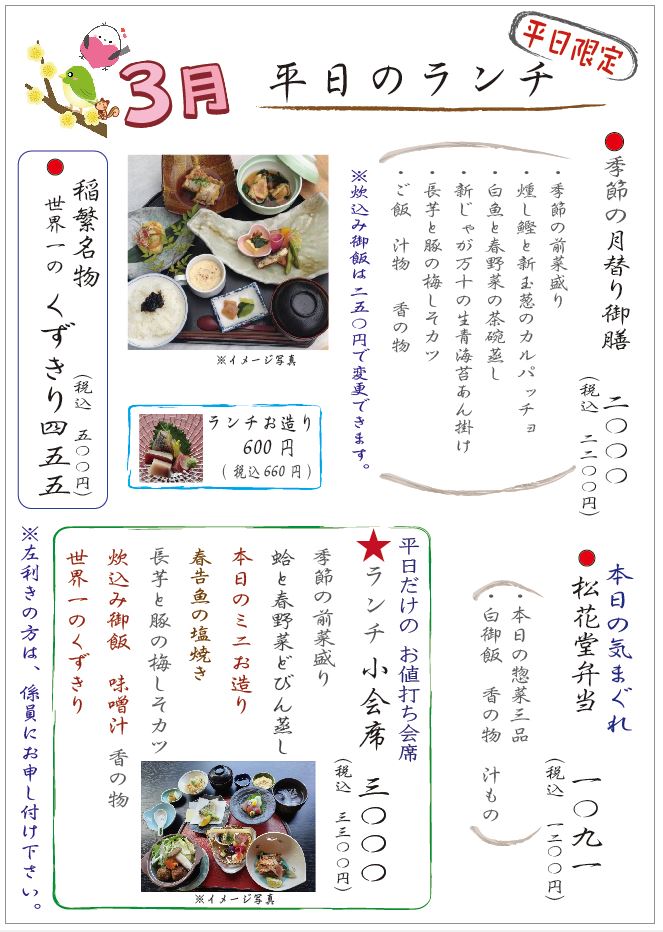 3月
平日のランチ
平日限定
季節の月替り御膳 二〇〇〇
(税込 二二〇〇円)
・季節の前菜盛り
・燻し鰹と新玉葱のカルパッチョ
・白魚と春野菜の茶碗蒸し
・新じゃが万十の生青海苔あん掛け
・長芋と豚の梅しそカツ
・ご飯 汁物 香の物
※炊込み御飯は二五〇円で変更できます。
※イメージ写真
ランチお造り
600円
(税込660円)
稲繁名物
世界一の くずきり四五五
(税込 五〇〇円)
本日の気まぐれ
松花堂弁当 一〇九一
(税込 一二〇〇円)
・本日の惣菜三品
・白御飯 香の物 汁もの
平日だけの お値打ち会席
ランチ 小会席 三〇〇〇
(税込 三三〇〇円)
季節の前菜盛り
蛤と春野菜どびん蒸し
本日のミニお造り
春告魚の塩焼き
長芋と豚の梅しそカツ
炊込み御飯 味噌汁 香の物
世界一のくずきり
※イメージ写真
※左利きの方は、係員にお申し付け下さい。